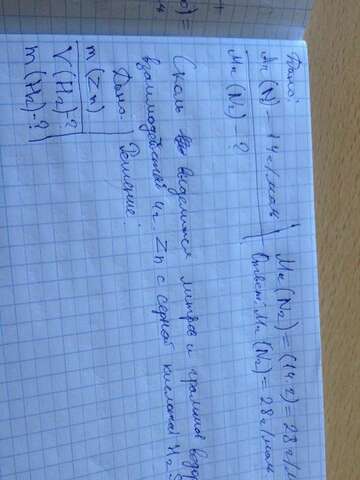 Дано:
M(N) - 14 г/моль
Mr(N₂) - ?
Mr(N₂) = (14·2) = 28 г/м
Ответ: Mr(N₂) = 28 г/моль
Сколь выделится литров и граммов водо
взаимодействии 4 г. Zn с серной кислотой H₂S
Дано: Решение:
m(Zn)
V(H₂)-?
m(H₂)-?